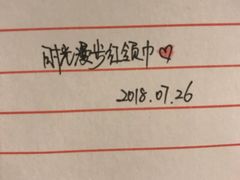 时光漫步红领巾♡
2018.07.26